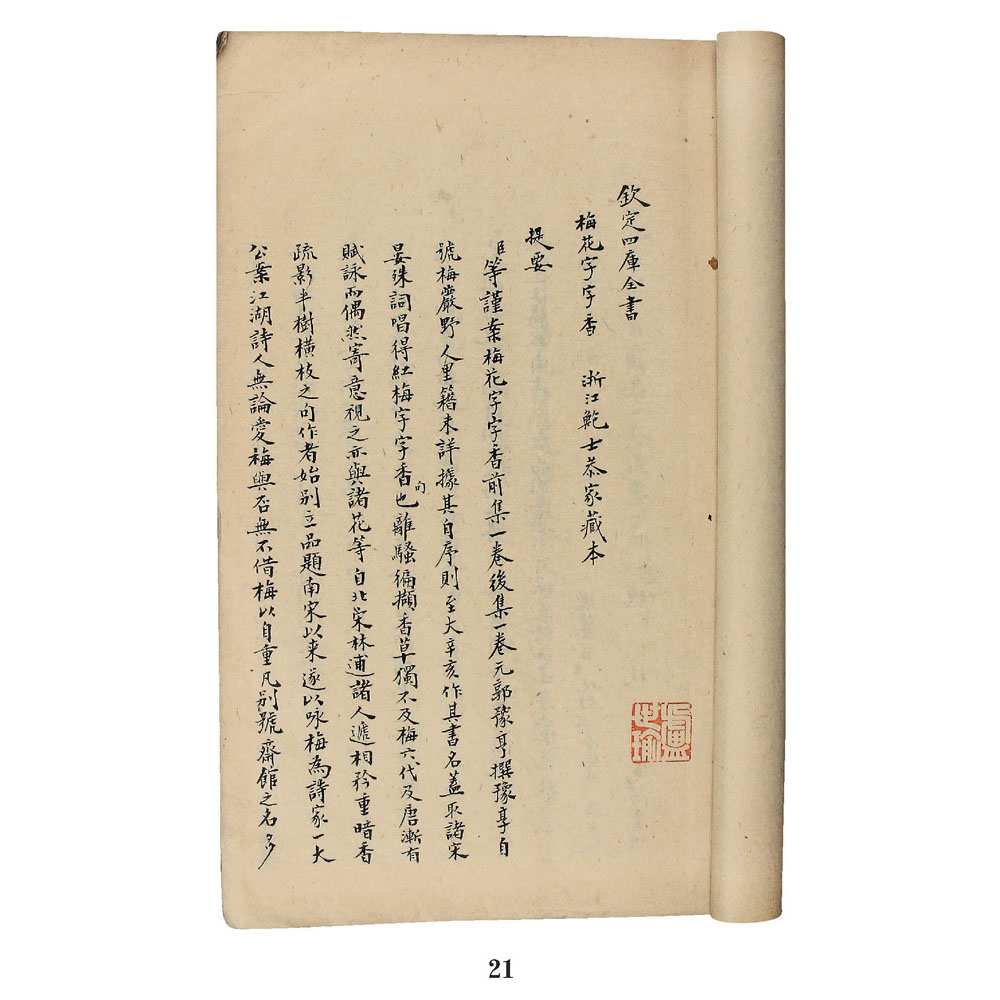 欽定四庫全書
梅花字字香　浙江鮑士恭家藏本
提要
臣等謹案梅花字字香前集一卷後集一卷元郭豫亨撰豫亨自
號梅巖野人里籍未詳據其自序則至大辛亥作其書名蓋取諸宋
晏殊詞唱得紅梅字字香句也離騷徧擷香草獨不及梅六代及唐漸有
賦詠而偶然寄意視之亦與諸花等自北宋林逋諸人遞相矜重暗香
疏影半樹橫枝之句作者始別立品題南宋以来遂以咏梅為詩家一大
公案江湖詩人無論愛梅與否無不借梅以自重凡別號齋館之名多
21